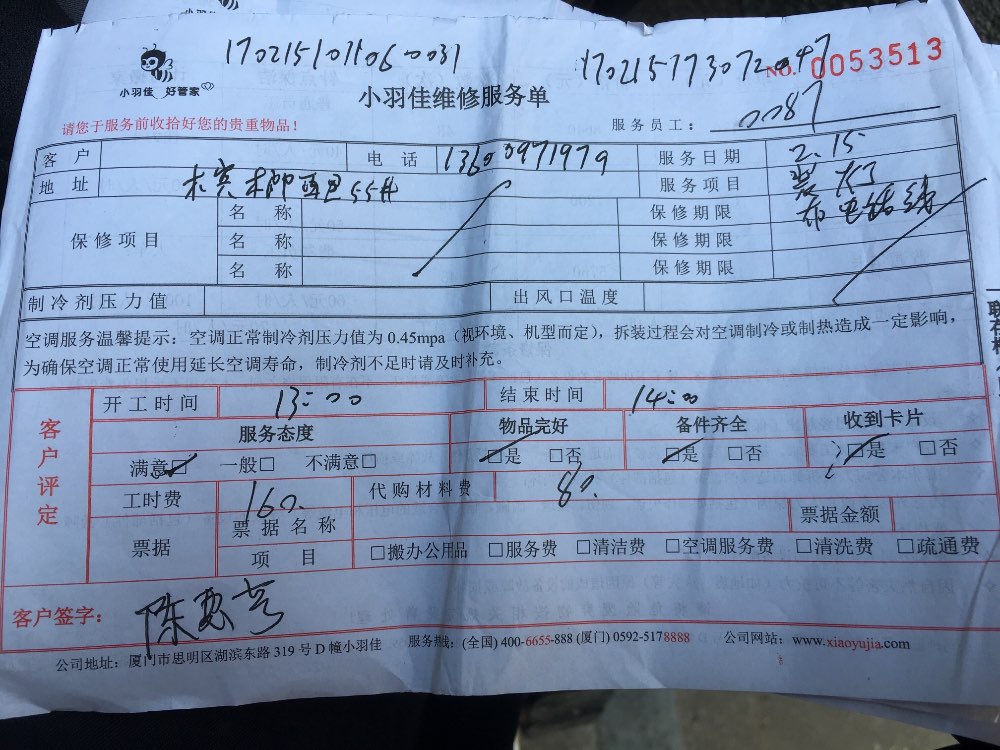 170215101106 0031
170215773072 047
小羽佳 好管家
小羽佳维修服务单
NO. 0053513
请您于服务前收拾好您的贵重物品！
服务员工：0087
客户 电话 服务日期 2.15
地址 服务项目
布电话线
保修项目 名称 保修期限
名称 保修期限
名称 保修期限
制冷剂压力值 出风口温度
空调服务温馨提示：空调正常制冷剂压力值为 0.45mpa（视环境、机型而定），拆装过程会对空调制冷或制热造成一定影响，
为确保空调正常使用延长空调寿命，制冷剂不足时请及时补充。
客户评定
开工时间 13:00 结束时间 14:00
服务态度 物品完好 备件齐全 收到卡片
满意☑ 一般□ 不满意□ ☑是 □否 ☑是 □否 ☑是 □否
工时费 160. 代购材料费 80.
票据 票据名称 票据金额
项目 □搬办公用品 □服务费 □清洁费 □空调服务费 □清洗费 □疏通费
客户签字：陈
公司地址：厦门市思明区湖滨东路 319 号 D 幢小羽佳 服务热线：(全国) 400-6655-888 (厦门) 0592-5178888 公司网站：www.xiaoyujia.com